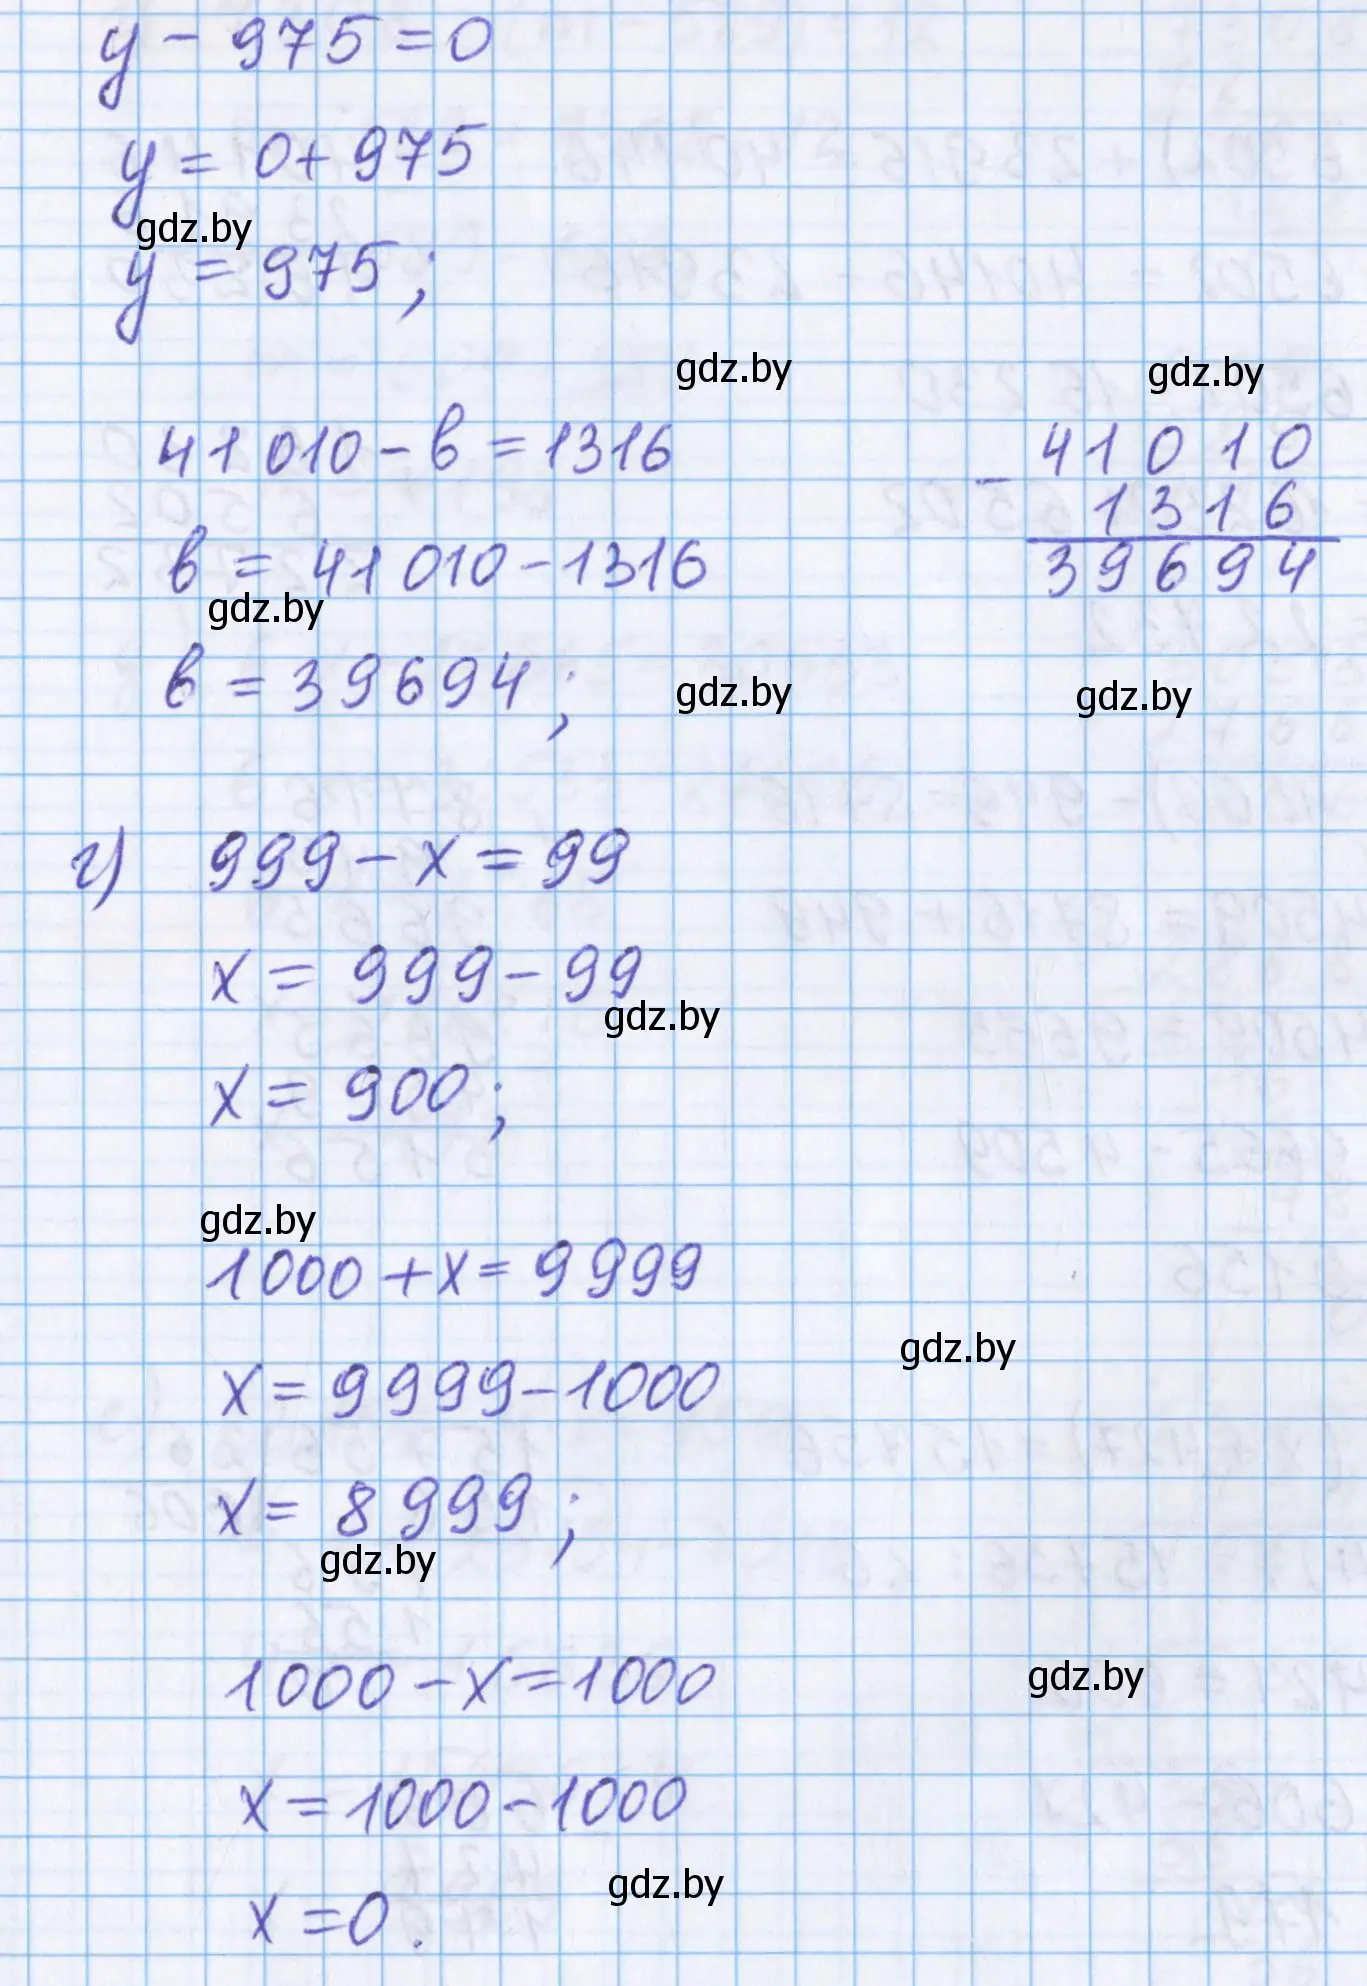 y - 975 = 0
y = 0 + 975
gdz.by
y = 975;
gdz.by gdz.by
41 010 - в = 1316
в = 41 010 - 1316
gdz.by
в = 39694;
- 41010
1316
39694
gdz.by gdz.by
г) 999 - x = 99
x = 999 - 99
gdz.by
x = 900;
gdz.by
1000 + x = 9999
gdz.by
x = 9999 - 1000
x = 8999;
gdz.by
1000 - x = 1000
gdz.by
x = 1000 - 1000
gdz.by
x = 0.